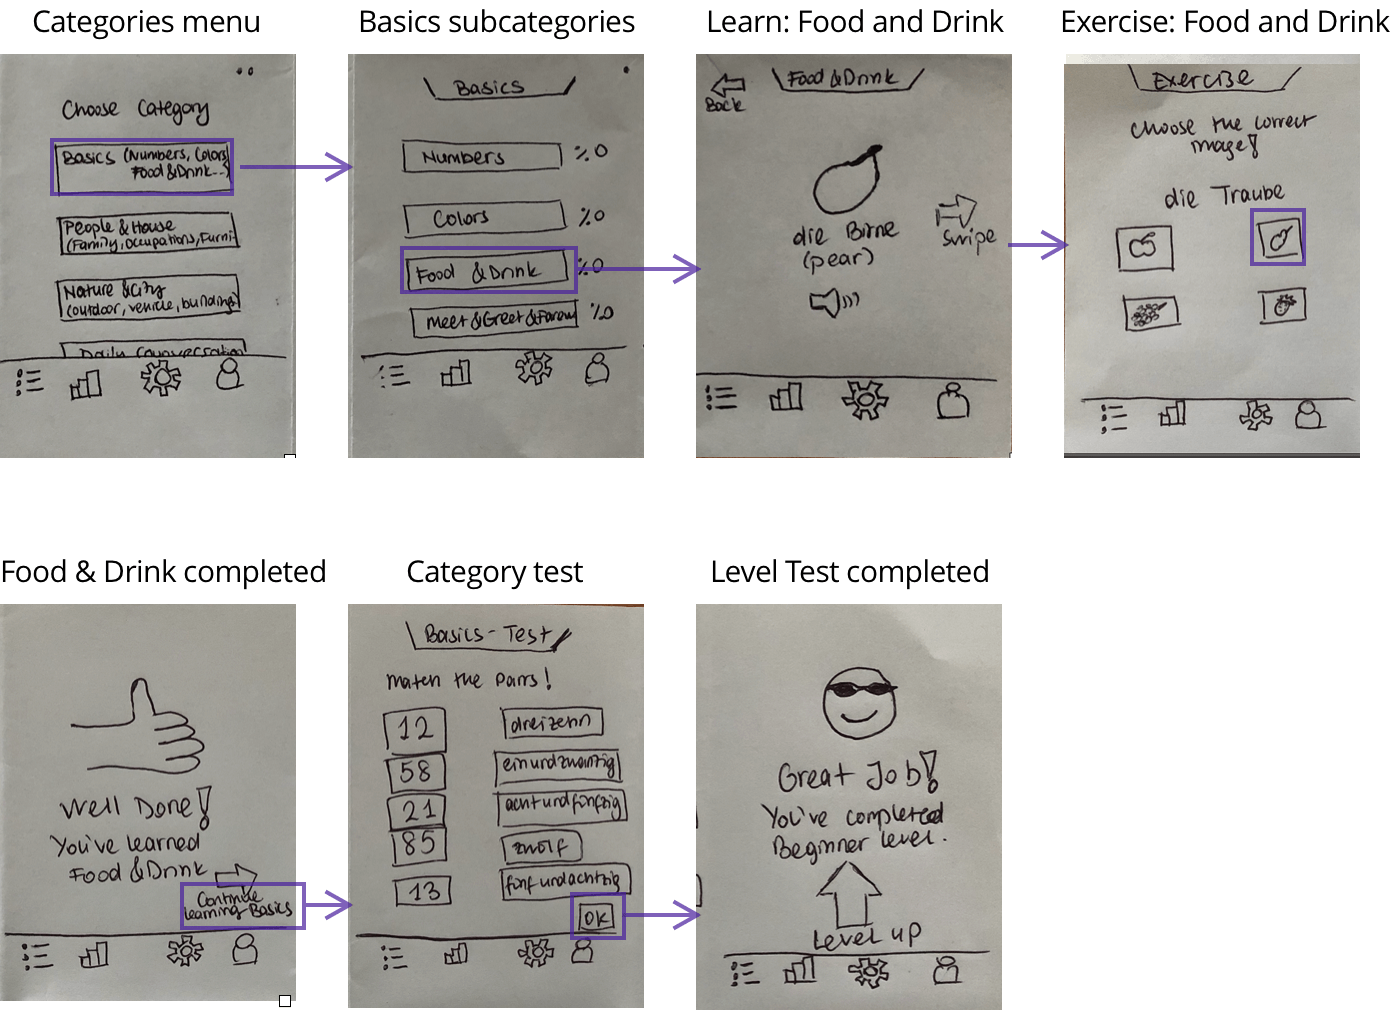 Categories menu
Choose Category
Basics (Numbers, Colors,
Food & Drink...)
People & House
(Family, occupations, Furni-
Nature & City
(outdoor, vehicle, building)
Daily Counversation
Basics subcategories
Basics
Numbers %0
Colors %0
Food & Drink %0
Meet & Greet & Farew %0
Learn: Food and Drink
Back
Food & Drink
die Birne
(pear)
Swipe
Exercise: Food and Drink
Exercise
Choose the correct
image!
die Traube
Food & Drink completed
Well Done!
You've learned
Food & Drink
Continue
learning Basics
Category test
Basics - Test
Match the Pairs!
12 dreizehn
58 einundzwanzig
21 achtundfünfzig
85 zwölf
13 fünfundachtzig
OK
Level Test completed
Great Job!
You've completed
Beginner level.
Level up